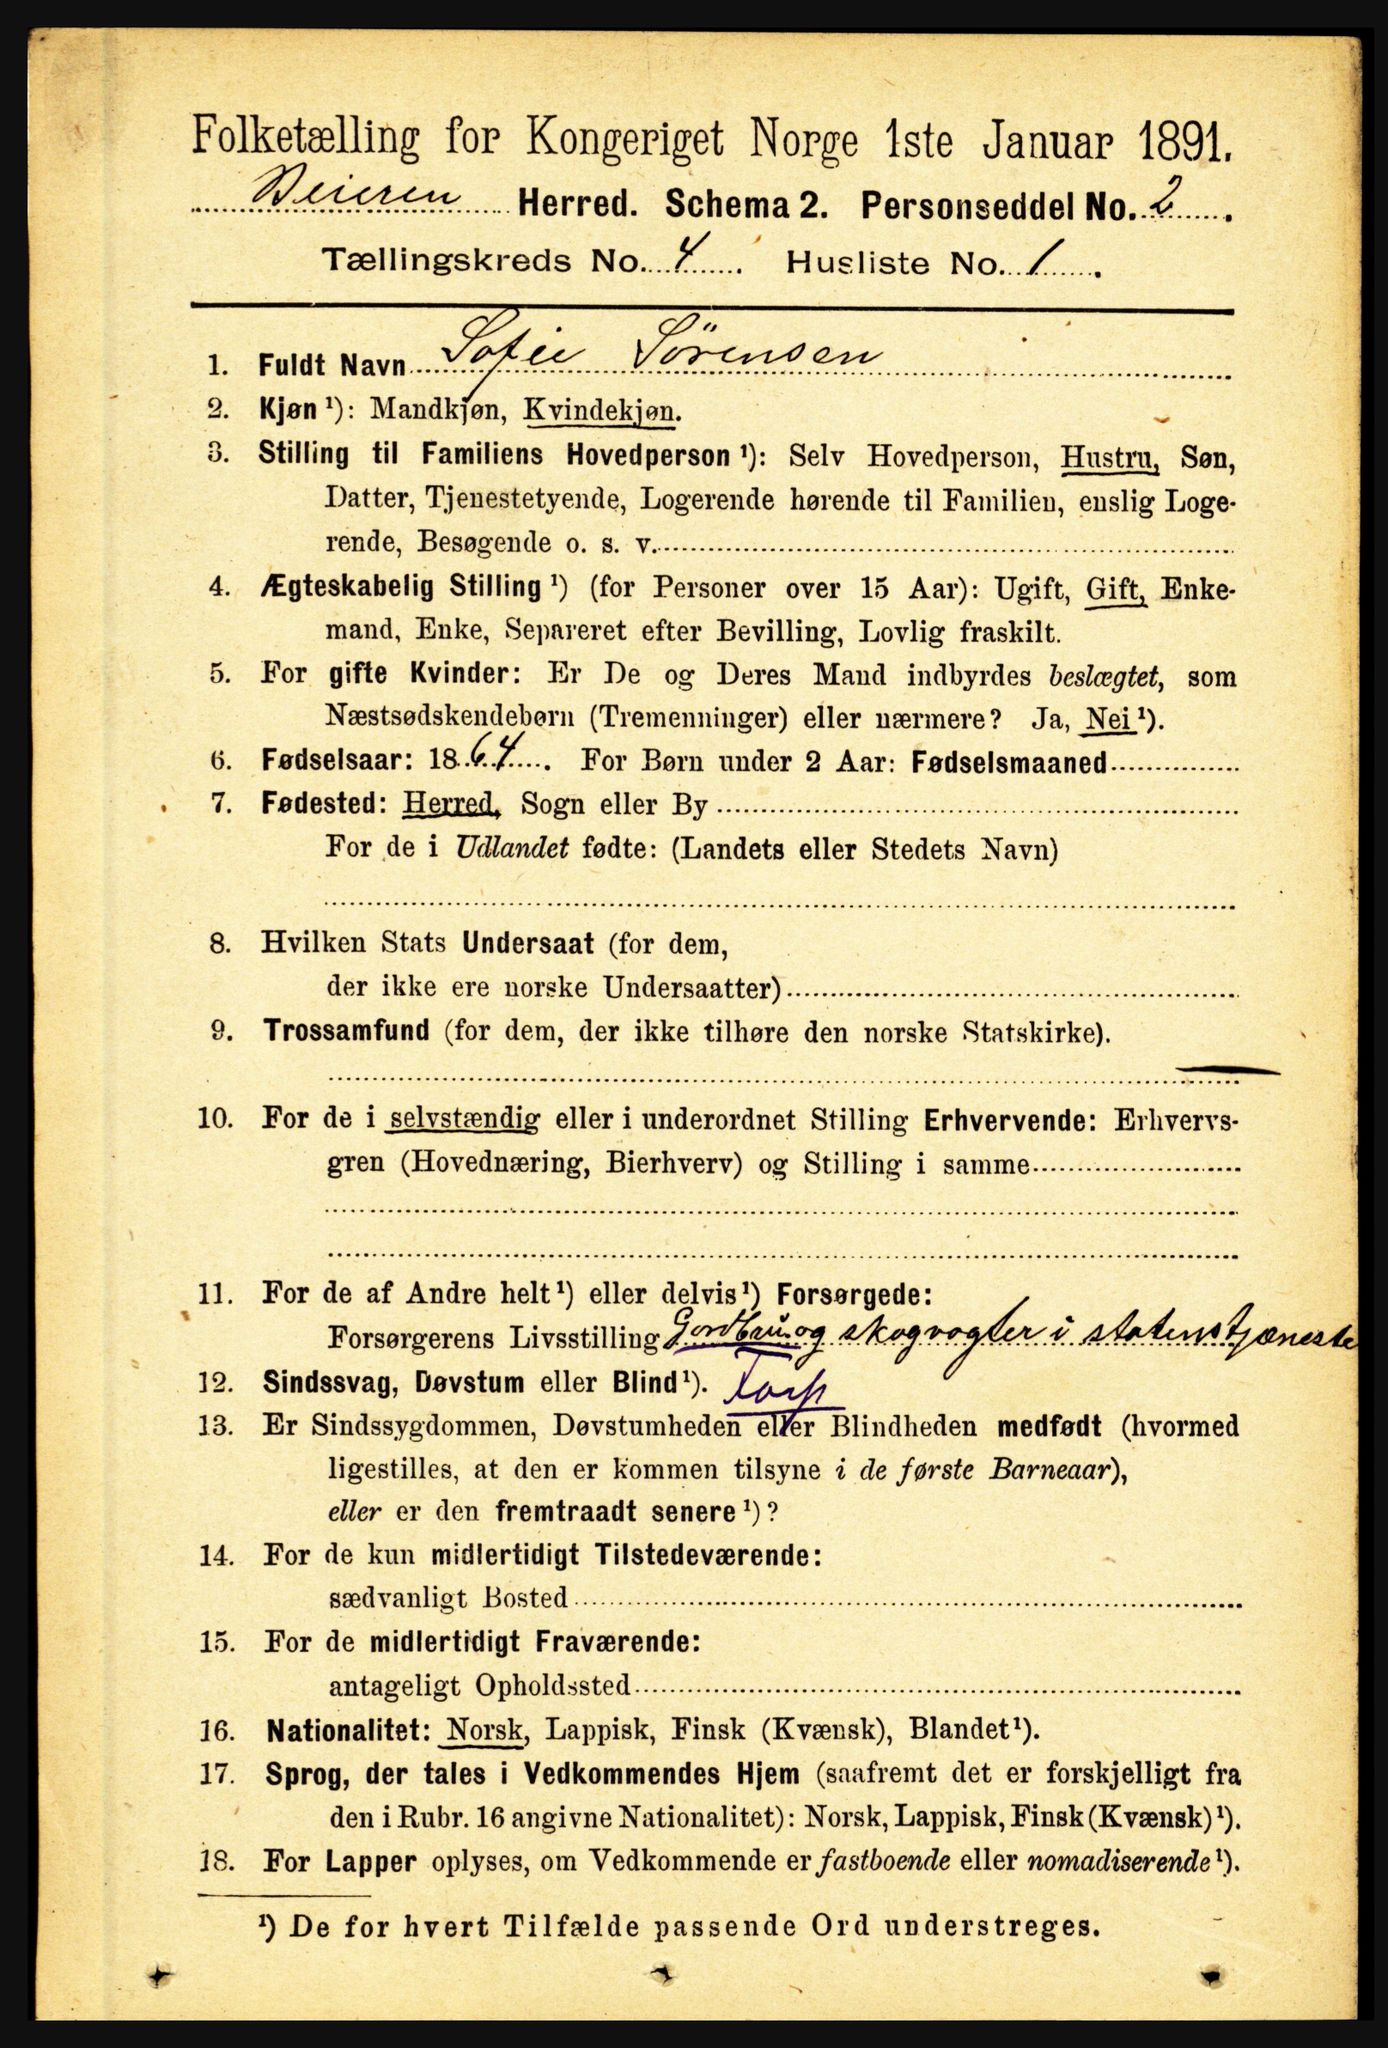 Folketælling for Kongeriget Norge 1ste Januar 1891.
Beieren Herred. Schema 2. Personseddel No. 2.
Tællingskreds No. 4. Husliste No. 1.
1. Fuldt Navn Sofie Sörensen
2. Kjøn¹): Mandkjøn, Kvindekjøn.
3. Stilling til Familiens Hovedperson¹): Selv Hovedperson, Hustru, Søn,
Datter, Tjenestetyende, Logerende hørende til Familien, enslig Loge-
rende, Besøgende o. s. v.
4. Ægteskabelig Stilling¹) (for Personer over 15 Aar): Ugift, Gift, Enke-
mand, Enke, Separeret efter Bevilling, Lovlig fraskilt.
5. For gifte Kvinder: Er De og Deres Mand indbyrdes beslægtet, som
Næstsødskendebørn (Tremenninger) eller nærmere? Ja, Nei¹).
6. Fødselsaar: 1864. For Børn under 2 Aar: Fødselsmaaned
7. Fødested: Herred, Sogn eller By
For de i Udlandet fødte: (Landets eller Stedets Navn)
8. Hvilken Stats Undersaat (for dem,
der ikke ere norske Undersaatter)
9. Trossamfund (for dem, der ikke tilhøre den norske Statskirke).
10. For de i selvstændig eller i underordnet Stilling Erhvervende: Erhvervs-
gren (Hovednæring, Bierhverv) og Stilling i samme
11. For de af Andre helt¹) eller delvis¹) Forsørgede:
Forsørgerens Livsstilling Gordbru. og skogvogter i statenstjæneste
12. Sindssvag, Døvstum eller Blind¹).
13. Er Sindssygdommen, Døvstumheden eller Blindheden medfødt (hvormed
ligestilles, at den er kommen tilsyne i de første Barneaar),
eller er den fremtraadt senere¹)?
14. For de kun midlertidigt Tilstedeværende:
sædvanligt Bosted
15. For de midlertidigt Fraværende:
antageligt Opholdssted
16. Nationalitet: Norsk, Lappisk, Finsk (Kvænsk), Blandet¹).
17. Sprog, der tales i Vedkommendes Hjem (saafremt det er forskjelligt fra
den i Rubr. 16 angivne Nationalitet): Norsk, Lappisk, Finsk (Kvænsk)¹).
18. For Lapper oplyses, om Vedkommende er fastboende eller nomadiserende¹).
¹) De for hvert Tilfælde passende Ord understreges.